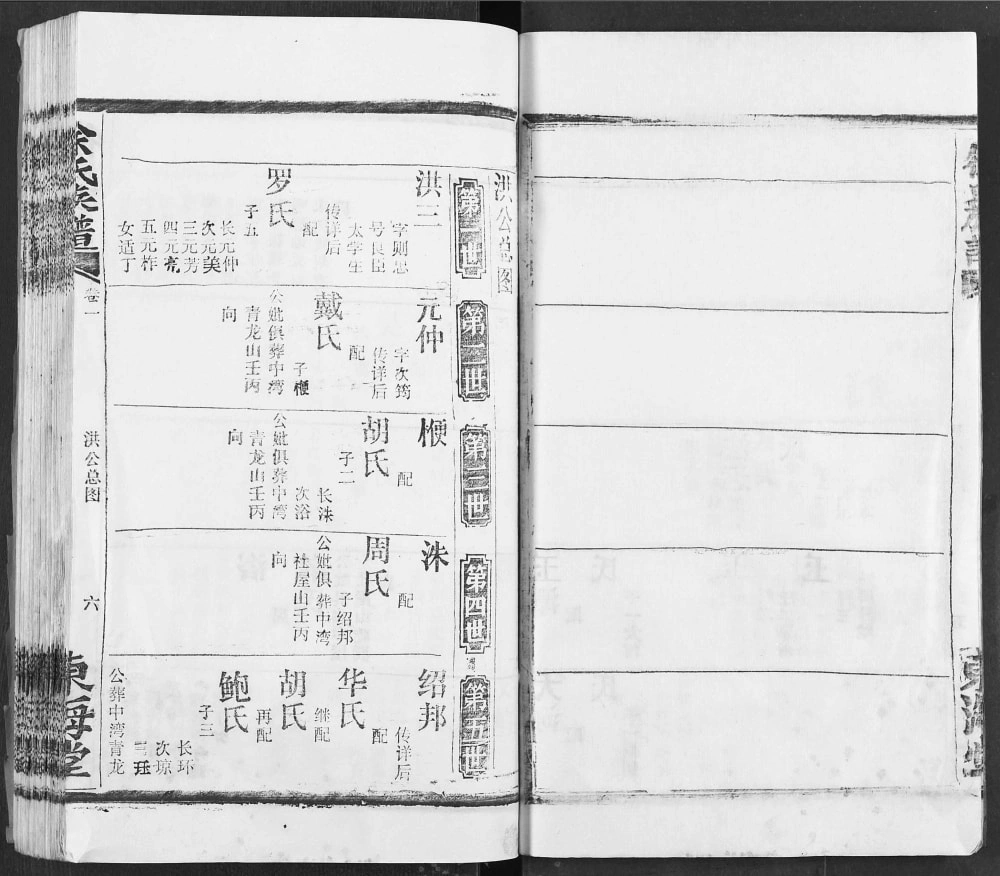 洪公总图
第一世
洪三
字则忠
号良臣
太学生
传详后
配
罗氏
子五
长元仲
次元美
三元芳
四元亮
五元柞
女适丁
第二世
元仲
字次筠
传详后
配
戴氏
子楩
公妣俱葬中湾
青龙山壬丙
向
第三世
楩
配
胡氏
子二
长洙
次浴
公妣俱葬中湾
青龙山壬丙
向
第四世
洙
配
周氏
子绍邦
公妣俱葬中湾
社屋山壬丙
向
第五世
绍邦
传详后
配
华氏
继配
胡氏
再配
鲍氏
子三
长环
次琼
三珏
公葬中湾青龙
氏族谱
卷一
洪公总图
六
東海堂
東海堂